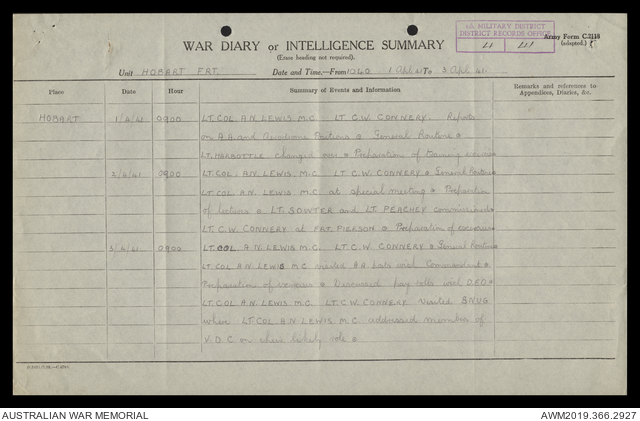 6th MILITARY DISTRICT
DISTRICT RECORDS OFFICE
4 41
Army Form C.2118
(adapted.)
WAR DIARY or INTELLIGENCE SUMMARY
(Erase heading not required).
Unit HOBART FRT. Date and Time,—From 1 Apl 41 To 3 Apl 41.
Place Date Hour Summary of Events and Information Remarks and references to Appendices, Diaries, &c.
HOBART 1/4/41 0900 LT. COL A.N. LEWIS M.C. LT C.W. CONNERY. Reports
on A.A. and Positions General Routine
LT. HARBOTTLE changed over Preparation of training exercises
2/4/41 0900 LT. COL. A.N. LEWIS M.C. LT C.W. CONNERY General Routine
LT. COL A.N. LEWIS M.C. at special meeting Preparation
of lectures LT. SOWTER and LT. PEACHEY commissioned
LT C.W. CONNERY at FRT. PIERSON Preparation of exercises
3/4/41 0900 LT. COL A.N. LEWIS M.C. LT. C.W. CONNERY General Routine
LT. COL A.N. LEWIS M.C. visited A.A. with Commandant
Preparation of exercises Discussed pay rolls with D.F.O.
LT. COL A.N. LEWIS M.C. LT. C.W. CONNERY Visited SNUG
where LT. COL A.N. LEWIS M.C. addressed members of
N.D.C on their likely role
AUSTRALIAN WAR MEMORIAL
AWM2019.366.2927